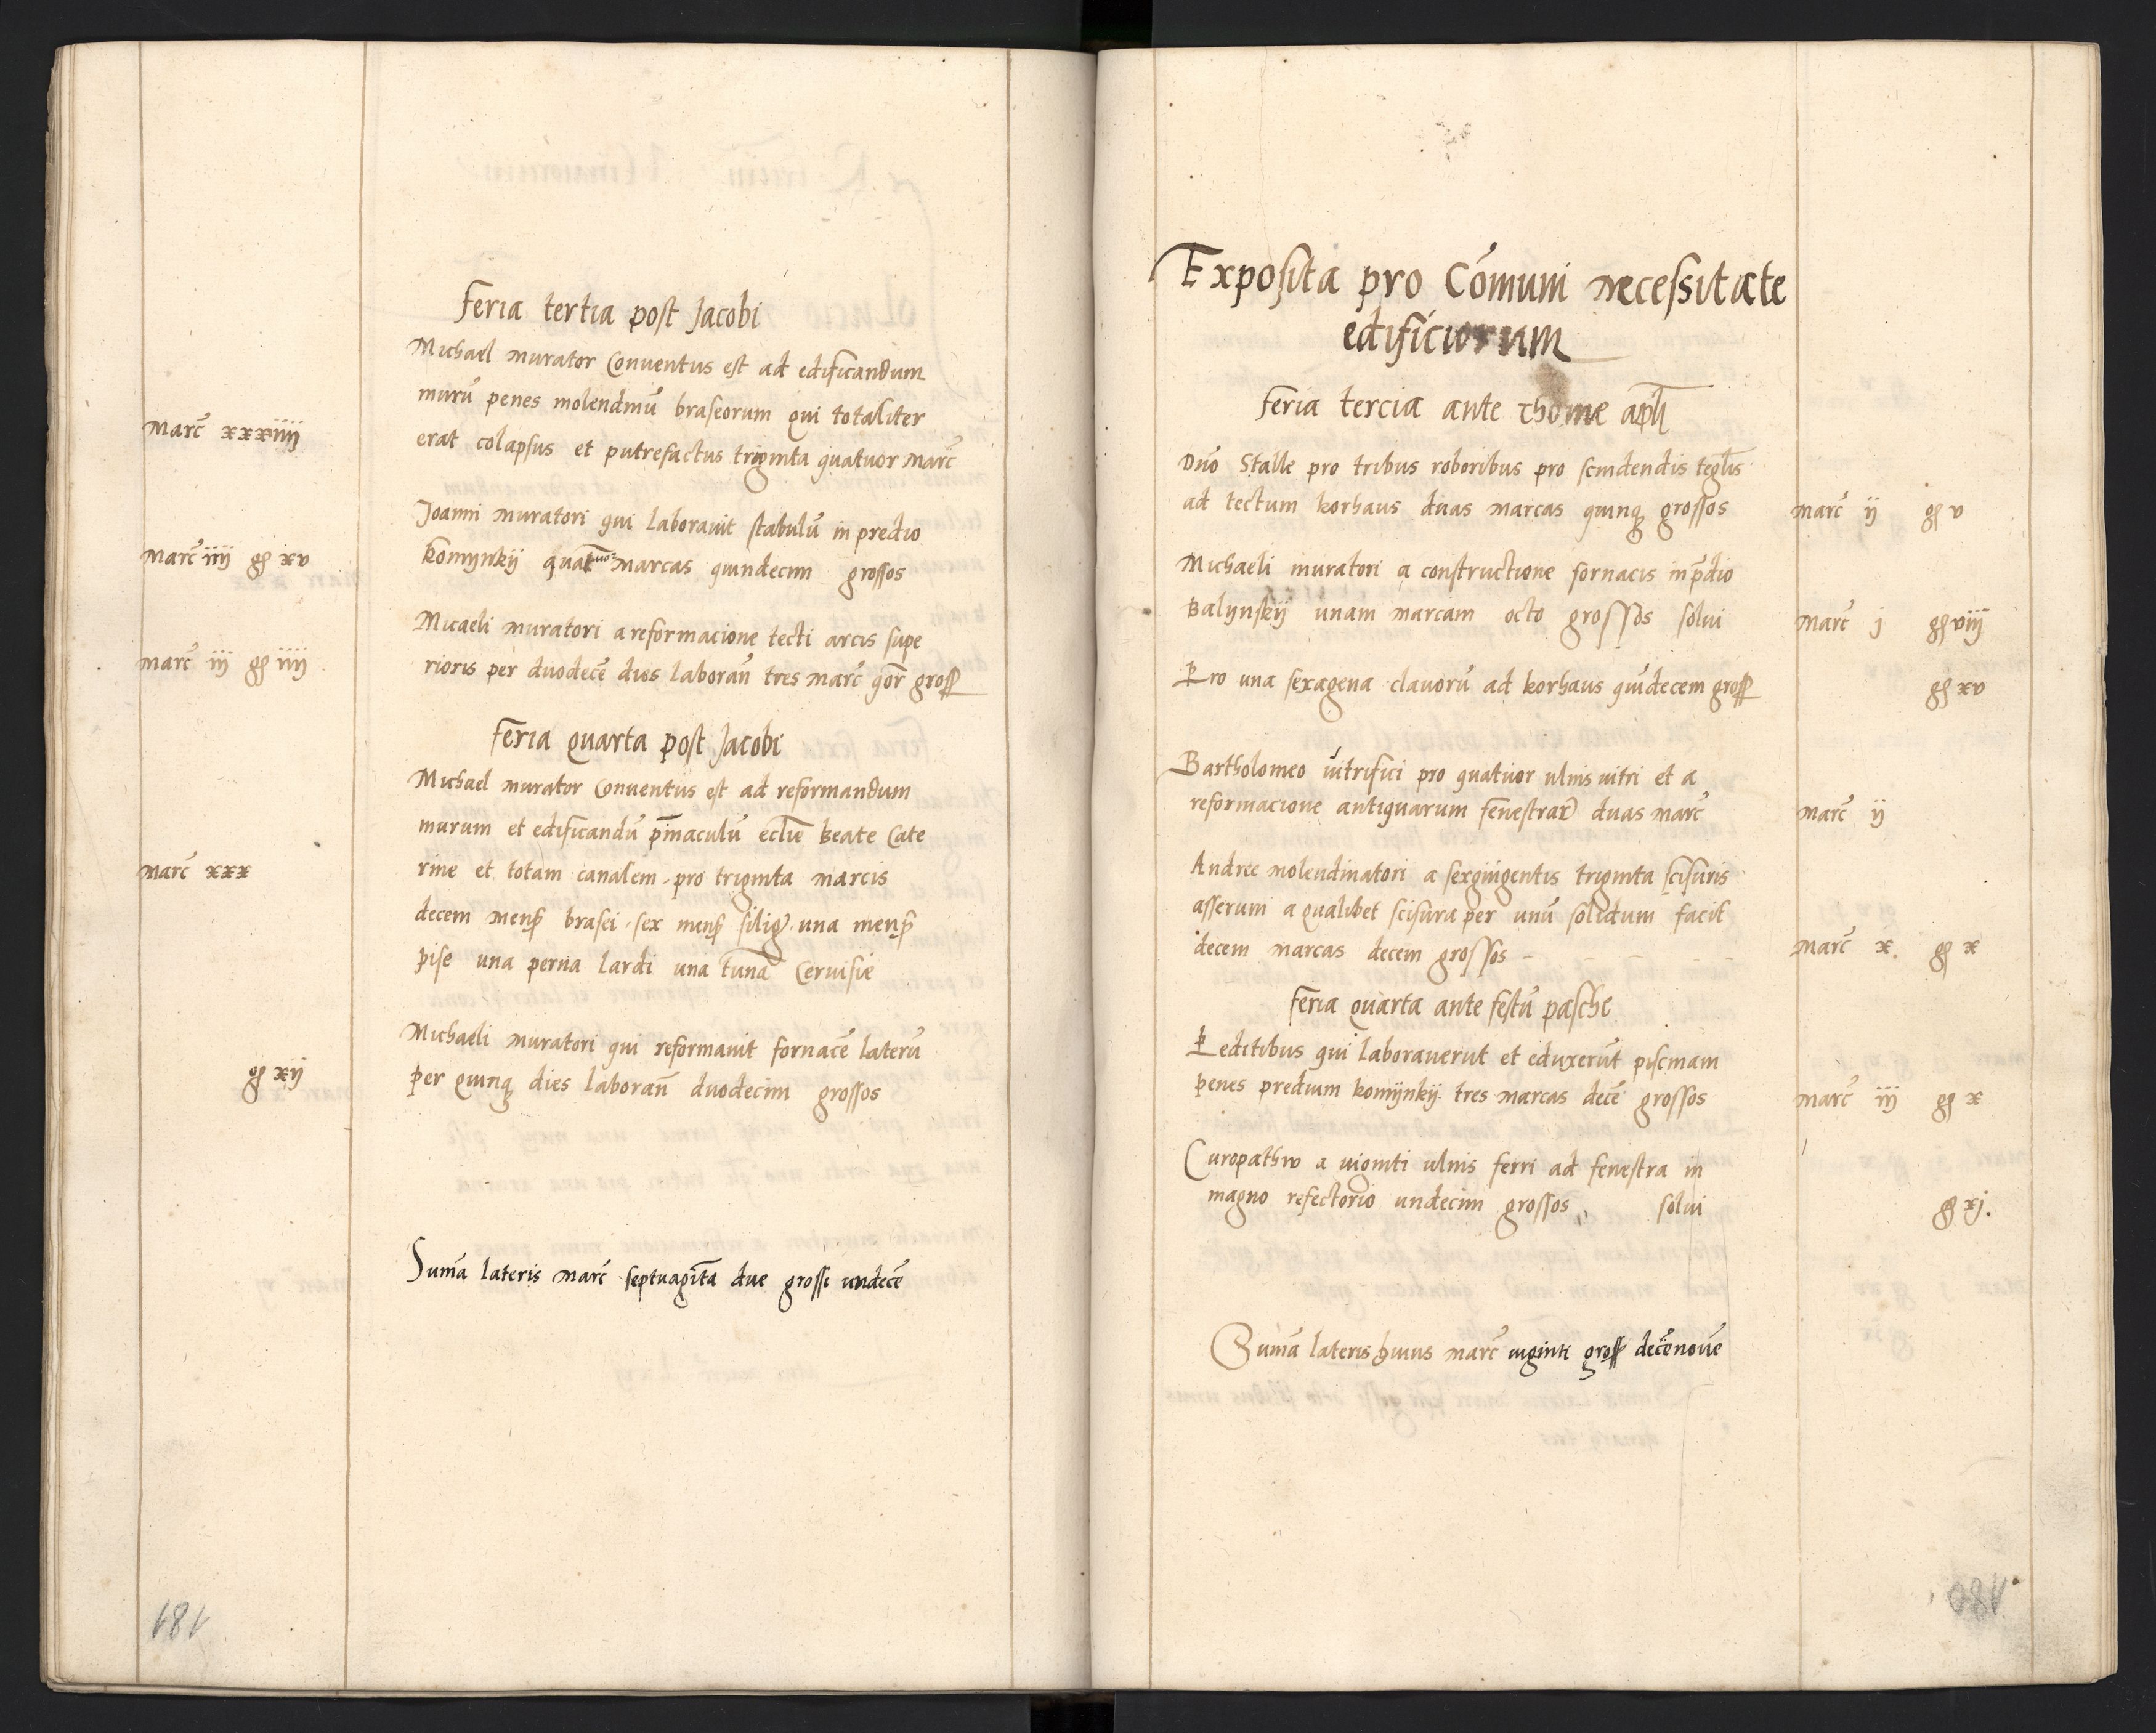 Feria tertia post Jacobi
Michael murator Conventus est ad edificandum
murū penes molendinū braseorum qui totaliter
Marc̄ xxxiiij
erat colapsus et putrefactus triginta quatuor Marc̄
Joanni muratori qui laborauit stabulū in predio
Marc̄ iiij gͦ xv
komijnkij quatuor Marcas quindecim grossos
Micaeli muratori a reformacione tecti arcis supe
Marc̄ iij gͦ iiij
rioris per duodecē dies laboran̄ tres Marc̄ qͦor gross
Feria quarta post Jacobi
Michael murator Conuentus est ad reformandum
murum et edificandū p̄inaculū eclīe beate Cate
Marc̄ xxx
rine et totam canalem pro triginta marcis
decem mens brasei sex mens siliḡ una mens
pise una perna lardi una tuna Ceruisie
Michaeli muratori qui reformauit fornacē laterū
gͦ xij
per quinqꝫ dies laboran̄ duodecim grossos
Sum̄a lateris Marc̄ septuagīta due grossi undecē
181
Exposita pro Com̄uni necessitate
edificiorum
Feria tercia ante Thome apli
Duō Stalle pro tribus roboribus pro scindendis teglis
ad tectum korhaus duas marcas quinqꝫ grossos
Marc̄ ij gͦ v
Michaeli muratori a constructione fornacis in p̄dio
Balijnskij unam marcam octo grossos solui
Marc̄ j gͦ viij
Pro una sexagena clauorū ad korhaus quīdecem gross
gͦ xv
Bartholomeo uitrifici pro quatuor ulnis uitri et a
reformacione antiquarum fenestrar̄ duas marc̄
Marc̄ ij
Andree molendinatori a sexgingentis triginta scisuris
asserum a qualibet scisura per unū solidum facit
decem marcas decem grossos
Marc̄ x. gͦ x
Feria quarta ante festū pasche
Peditibus qui laborauerūt et eduxerūt piscinam
penes predium komijnkij tres marcas decē grossos
Marc̄ iij gͦ x
Curopathwo a uiginti ulnis ferri ad fenestra in
magno refectorio undecim grossos solui
gͦ xj.
Sum̄a lateris huius marc̄ uiginti gross decēnoue
180